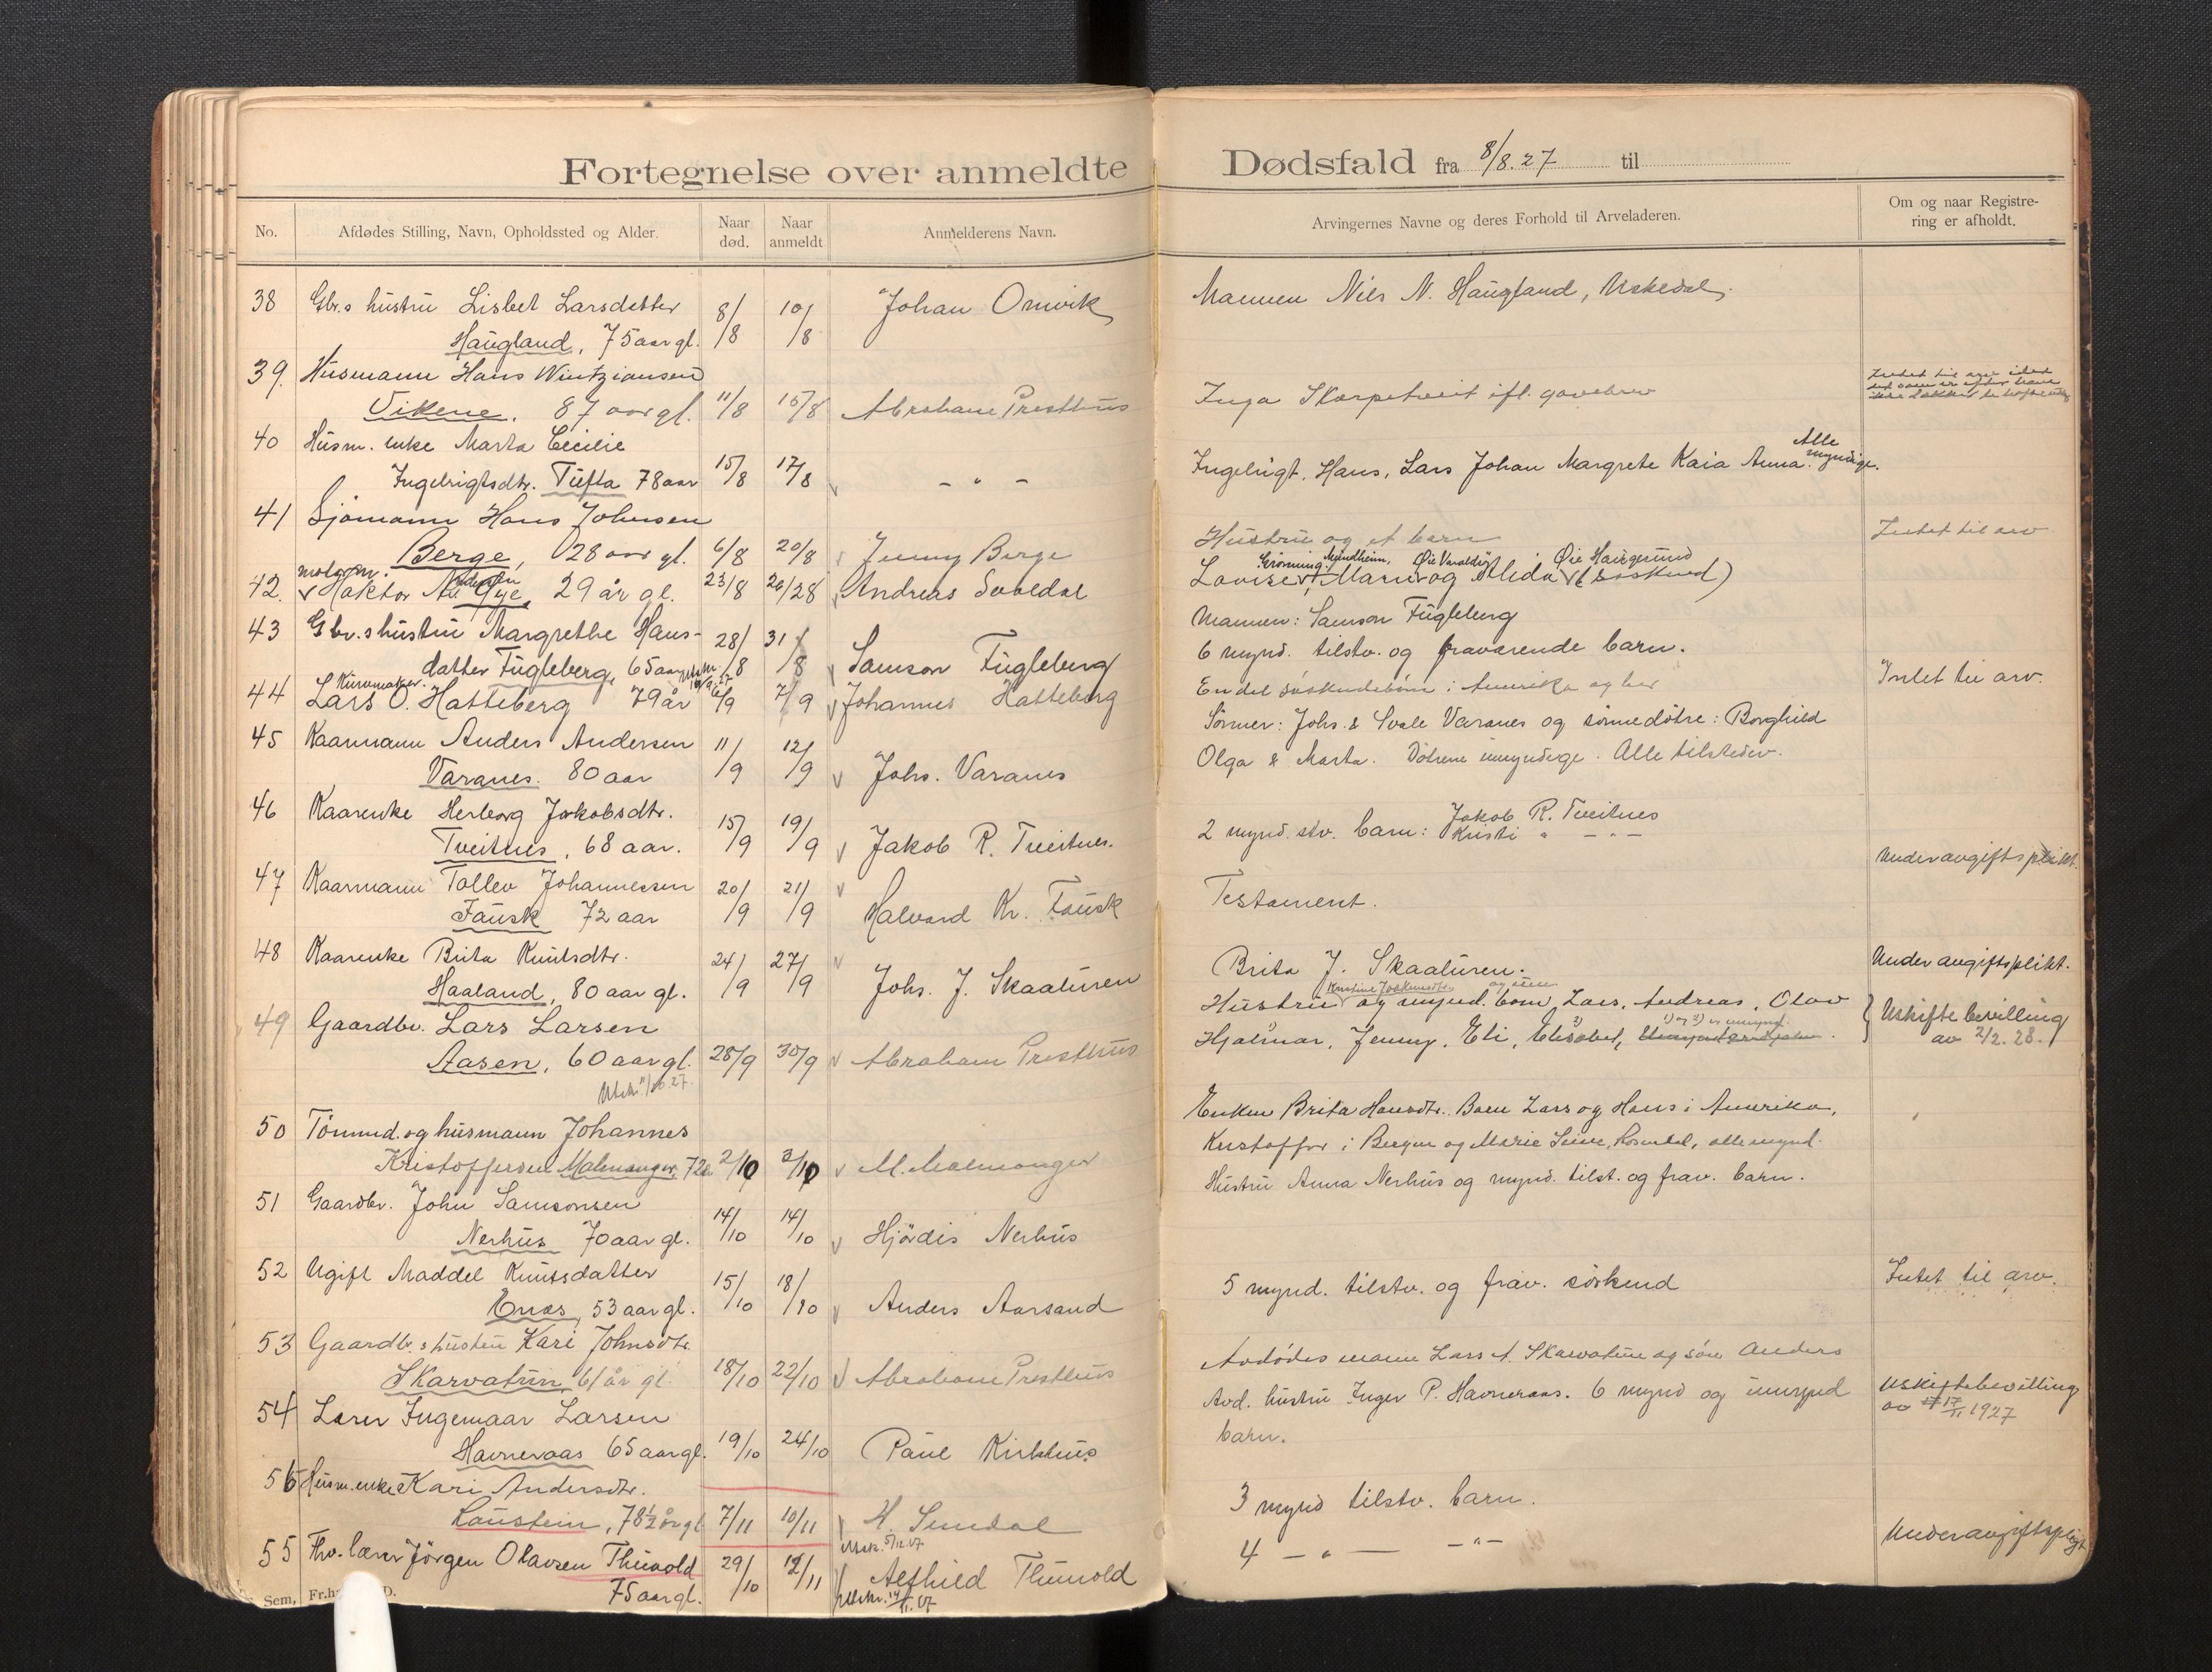 Fortegnelse over anmeldte
Dødsfald fra 8/8. 27 til
No.
Afdødes Stilling, Navn, Opholdssted og Alder.
Naar død.
Naar anmeldt
Anmelderens Navn.
Arvingernes Navne og deres Forhold til Arveladeren.
Om og naar Registrering er afholdt.
38 Gbr.s hustru Lisbet Larsdatter 8/8 10/8 Johan Omvik
Haugland, 75 aar gl.
Mannen Niels N. Haugland, Uskedal.
39. Husmann Hans Wintziansen
Vikene. 87 aar gl. 11/8 15/8 Abraham Presthus
Inga Skarpetveit ifl. gavebrev
Intet til arv
40 Husm. enke Marta Cecilie
Ingelrigtsdtr. Tufta 78 aar 15/8 17/8 - " -
Ingelrigt, Hans, Lars Johan Margrete Kaia Anna. Alle myndige.
41 Sjømann Hans Johnsen
Berge, 28 aar gl. 6/8 20/8 Jenny Berge
Hustru og et barn
Intet til arv
42. Haktor Andersen Øye, 29 år gl. 23/8 26/28 Andreas
Grønning, Myndheim, Øie Øie Haugesund
Lovise, Marie og Alida (søskend)
43 Gbr.s hustru Margrethe Hans-
datter Fugleberg, 65 aar 28/8 31/8 Samson Fugleberg
Mannen: Samson Fugleberg
6 mynd. tilstv. og fraværende barn.
44 Lars O. Hatteberg 79 år 6/9 7/9 Johannes Hatteberg
Endel søskendebørn i Amerika og her
Intet til arv.
45 Kaarmann Anders Andersen 11/9 12/9 Johs. Varanes
Varanes. 80 aar
Sønner: Johs. & Svale Varanes og sønnedøtre: Borghild
Olga & Marta. Døtrene umyndige. Alle tilstede.
46 Kaarenke Herborg Jakobsdtr.
Tveitnes, 68 aar. 15/9 19/9 Jakob R. Tveitnes.
2 mynd. stv. barn: Jakob R. Tveitnes
Kristi " - " -
47 Kaarmann Tollev Johannessen
Fausk 72 aar 20/9 21/9 Halvard Kr. Fausk
Testament.
Under avgiftsplikt.
48 Kaarenke Brita Knutsdtr.
Haaland, 80 aar gl. 24/9 27/9 Johs. J. Skaaluren
Brita J. Skaaluren.
Under avgiftsplikt.
49 Gaardbr. Lars Larsen
Aasen, 60 aar gl. 28/9 30/9 Abraham Presthus
Hustru og mynd. barn, Lars, Andreas, Olav
Hjalmar, Jenny, Eli, Elisabet,
Uskiftebevilling
av 2/2. 28.
50 Tømmd. og husmann Johannes
Kristoffersen Malmanger, 72 a. 2/10 3/10 M. Malmanger
Enken Brita Hansdtr. Barn Lars og Hans i Amerika,
Kristoffer i Bergen og Marie Rosendal, alle mynd.
51 Gaardbr. John Samsonsen
Nerhus 70 aar gl. 14/10 14/10 Hjørdis Nerhus
Hustru Anna Nerhus og mynd. tilst. og frav. barn.
52 Ugift Maddel Knutsdatter
Enæs, 53 aar gl. 15/10 18/10 Anders Aarsand
5 mynd. tilstv. og frav. søskend
Intet til arv.
53 Gaardbr.s hustru Kari Johnsdtr.
Skarvatun, 61 år gl. 18/10 22/10 Abraham Presthus
Avdødes mann Lars A. Skarvatun og søn Anders
54 Lærer Ingemaar Larsen
Havneraas 65 aar gl. 19/10 24/10 Paul Kirkhus
Avd. hustru Inger P. Havneraas. 6 mynd og umynd
barn.
Uskiftebevilling
av 17/11 1927
56 Husm. enke Kari Andersdtr.
Laustein, 78½ år gl 7/11 10/11 H. Sundal
3 mynd tilstv. barn.
55 Fhv. lærer Jørgen Olavsen Thuvold 29/10 12/11 Alfhild Thuvold
75 aar gl.
4 - " - - " -
Under avgiftspligt
Sem,